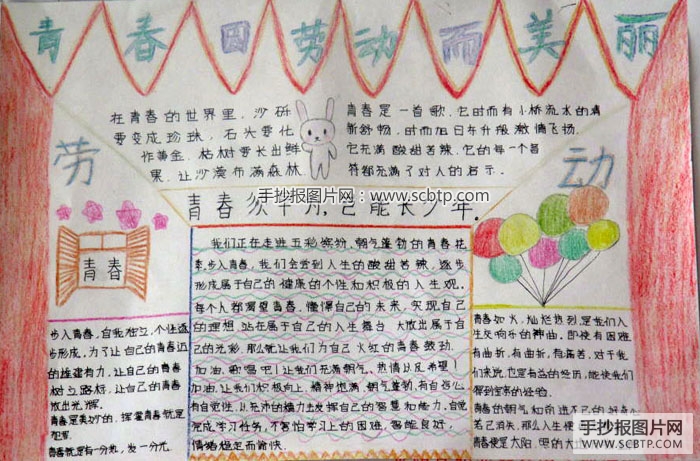 青春因劳动而美丽
在青春的世界里，沙砾
要变成珍珠，石头要化
作黄金，枯树要长出鲜
果，让沙漠布满森林
青春是一首歌，它时而有小桥流水的清
新舒畅，时而旭日东升般激情飞扬，
它充满酸甜苦辣，它的每一个音
符都充满了对人的启示。
劳
动
手抄报图片网：www.scbtp.com
青春
步入青春，自我独立，个性逐
步形成，为了让自己的青春迈
的雄健有力，让自己的青春
树立路标，让自己的青春
放出光辉。
青春是美好的，挥霍青春就是
犯罪。
青春就是有一分热，发一分光。
我们正在走进五彩缤纷，朝气蓬勃的青春花
季，步入青春，我们会尝到人生的酸甜苦辣，逐步
形成属于自己的健康的个性和积极的人生观。
每个人都渴望青春，懂得自己的未来，实现自己
的理想，站在属于自己的人生舞台，大放出属于自
己的光彩，那么就让我们为自己火红的青春鼓动，
加油，歌唱吧！让我们充满朝气，热情以及希望！
加油，让我们积极向上，精神饱满，朝气蓬勃，有自信心，
有自觉性，以充沛的精力去发挥自己的智慧和能力，自觉
完成学习任务，不害怕学习上的困难，智能良好，
情绪稳定而愉快。
青春如火，灿烂热烈，是我们人
生交响乐的神曲，即使有困难
有曲折，有曲折，有痛苦，对于我
们来说，也是有益的经历，能使我们
得到宝贵的经验。
青春的朝气和前进不已的好奇心
若已消失，那么人生便
青春便是太阳，
手抄报图片网
WWW.SCBTP.COM